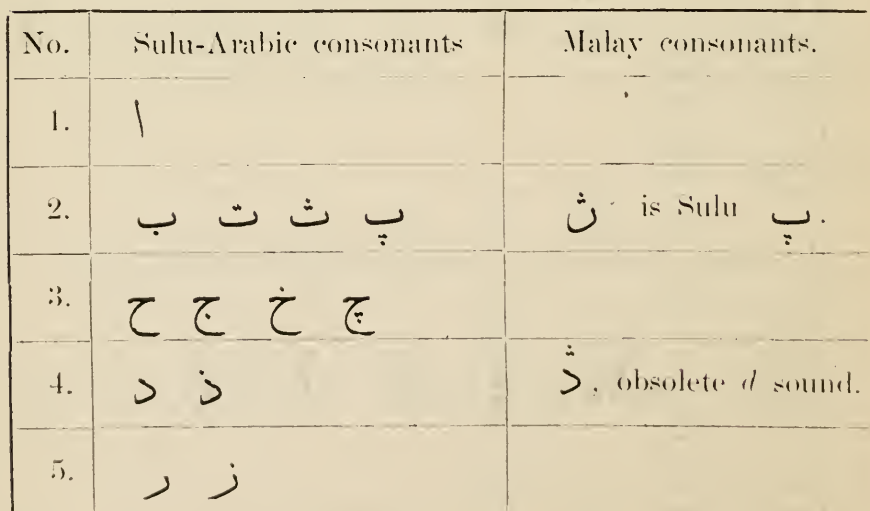 No. Sulu-Arabic consonants Malay consonants.
1. ا
2. ب ت ث پ ڽ is Sulu پ.
3. ح ج خ چ
4. د ذ ڎ, obsolete d sound.
5. ر ز